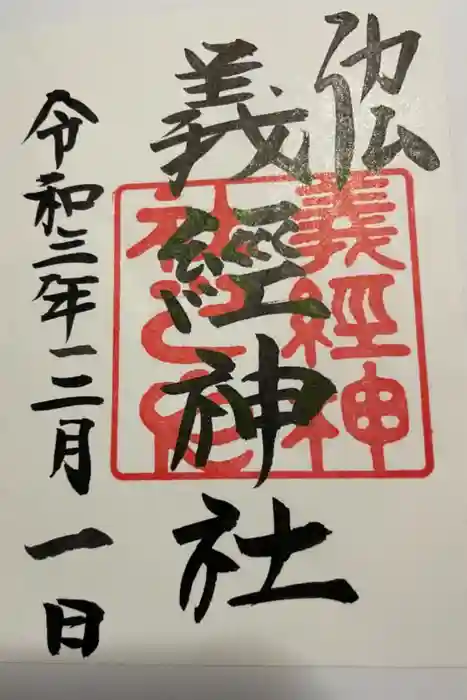 義經神社
義經神
社之印
令和三年三月一日